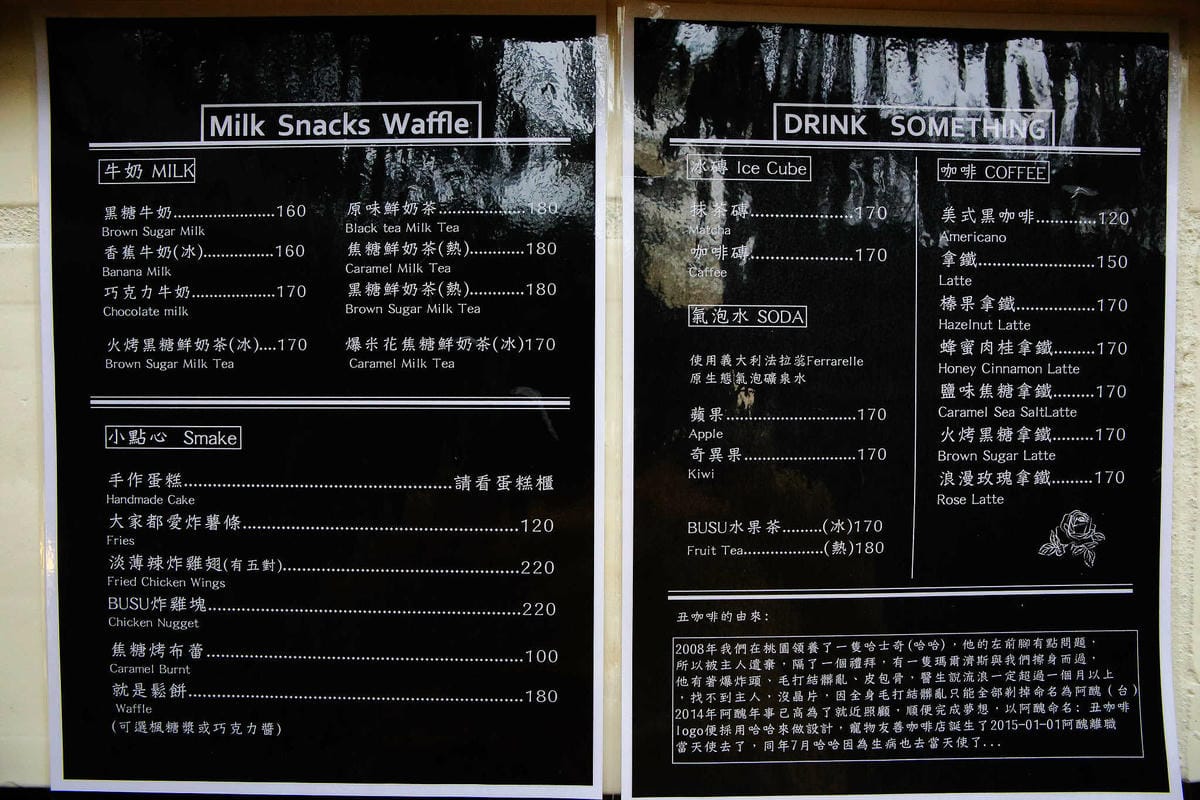 Milk Snacks Waffle
牛奶 MILK
黑糖牛奶.......................160
Brown Sugar Milk
香蕉牛奶(冰)................160
Banana Milk
巧克力牛奶...................170
Chocolate milk
火烤黑糖鮮奶茶(冰)....170
Brown Sugar Milk Tea
原味鮮奶茶...................180
Black tea Milk Tea
焦糖鮮奶茶(熱)............180
Caramel Milk Tea
黑糖鮮奶茶(熱)............180
Brown Sugar Milk Tea
爆米花焦糖鮮奶茶(冰)170
Caramel Milk Tea
小點心 Smake
手作蛋糕..........................................................請看蛋糕櫃
Handmade Cake
大家都愛炸薯條............................................................120
Fries
淡薄辣炸雞翅(有五對)....................................................220
Fried Chicken Wings
BUSU炸雞塊....................................................................220
Chicken Nugget
焦糖烤布蕾......................................................................100
Caramel Burnt
就是鬆餅.........................................................................180
Waffle
(可選楓糖漿或巧克力醬)
DRINK SOMETHING
冰磚 Ice Cube
抹茶磚.......................170
Matcha
咖啡磚.......................170
Caffee
氣泡水 SODA
使用義大利法拉蕊Ferrarelle
原生態氣泡礦泉水
蘋果............................170
Apple
奇異果........................170
Kiwi
BUSU水果茶.........(冰)170
Fruit Tea..................(熱)180
咖啡 COFFEE
美式黑咖啡............120
Americano
拿鐵..........................150
Latte
榛果拿鐵..................170
Hazelnut Latte
蜂蜜肉桂拿鐵.........170
Honey Cinnamon Latte
鹽味焦糖拿鐵.........170
Caramel Sea SaltLatte
火烤黑糖拿鐵.........170
Brown Sugar Latte
浪漫玫瑰拿鐵.........170
Rose Latte
丑咖啡的由來:
2008年我們在桃園領養了一隻哈士奇(哈哈)，他的左前腳有點問題，
所以被主人遺棄，隔了一個禮拜，有一隻瑪爾濟斯與我們擦身而過，
他有著爆炸頭、毛打結髒亂、皮包骨，醫生說流浪一定超過一個月以上
，找不到主人，沒晶片，因全身毛打結髒亂只能全部剃掉命名為阿醜（台）
2014年阿醜年事已高為了就近照顧，順便完成夢想，以阿醜命名：丑咖啡
logo便採用哈哈來做設計，寵物友善咖啡店誕生了2015-01-01阿醜離職
當天使去了，同年7月哈哈因為生病也去當天使了...